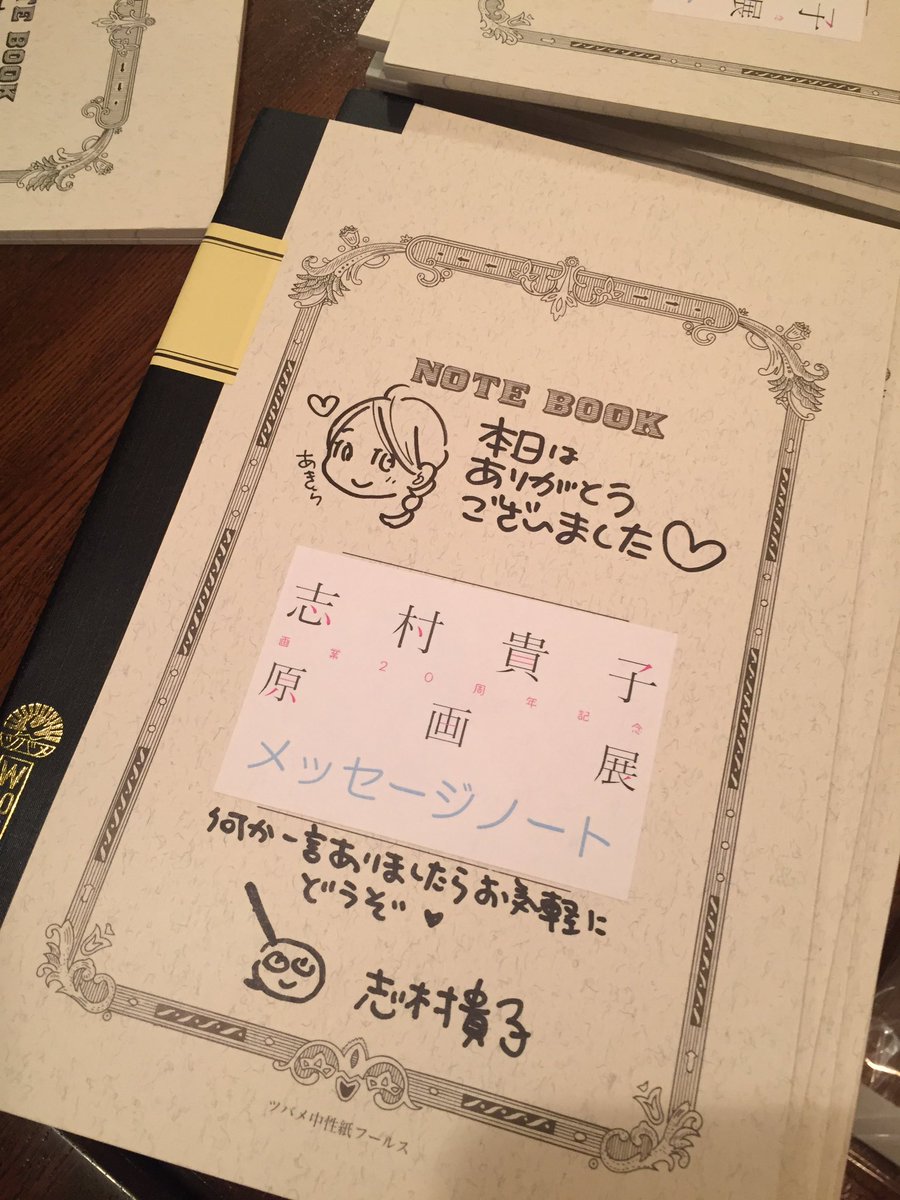 TE BOOK
子
展
NOTE BOOK
あきら
本日は
ありがとう
ございました
志村貴子
画業20周年記念
原画展
メッセージノート
何か一言ありましたらお気軽に
どうぞ
志村貴子
ツバメ中性紙フールス
ツバメ